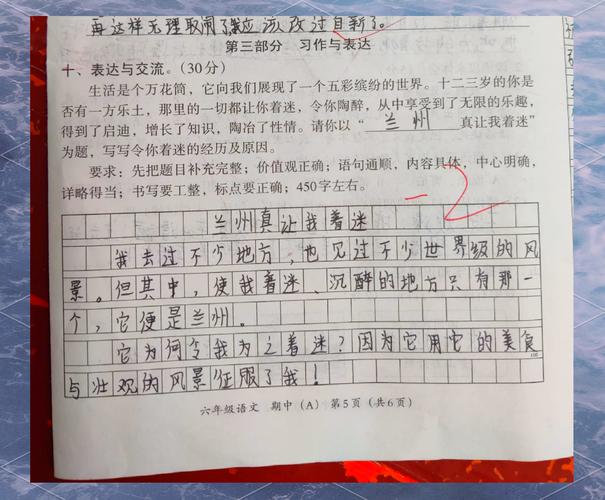 再这样无理取闹了,我应该改过自新了。
第三部分 习作与表达
十、表达与交流。(30分)
生活是个万花筒,它向我们展现了一个五彩缤纷的世界。十二三岁的你是
否有一方乐土,那里的一切都让你着迷,令你陶醉,从中享受到了无限的乐趣,
得到了启迪,增长了知识,陶冶了性情。请你以“ 兰州 真让我着迷”
为题,写写令你着迷的经历及原因。
要求:先把题目补充完整;价值观正确;语句通顺,内容具体,中心明确,
详略得当;书写要工整,标点要正确;450字左右。
-2
兰州真让我着迷
我去过不少地方,也见过不少世界级的风
景。但其中,使我着迷、沉醉的地方只有那一
个,它便是兰州。
它为何令我为之着迷?因为它用它的美食
与壮观的风景征服了我!
六年级语文 期中(A) 第5页(共6页)